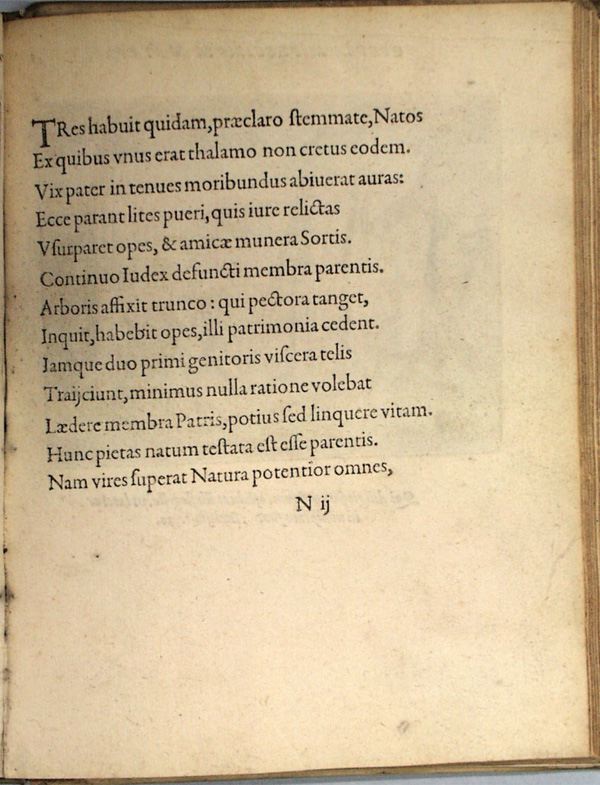 TRes habuit quidam, præclaro ſtemmate, Natos
Ex quibus vnus erat thalamo non cretus eodem.
Vix pater in tenues moribundus abiuerat auras:
Ecce parant lites pueri, quis iure relictas
Vſurparet opes, & amicæ munera Sortis.
Continuo Iudex defuncti membra parentis.
Arboris affixit trunco: qui pectora tanget,
Inquit, habebit opes, illi patrimonia cedent.
Iamque duo primi genitoris viſcera telis
Traijciunt, minimus nulla ratione volebat
Lædere membra Patris, potius ſed linquere vitam.
Hunc pietas natum teſtata eſt eſſe parentis.
Nam vires ſuperat Natura potentior omnes,
N ij